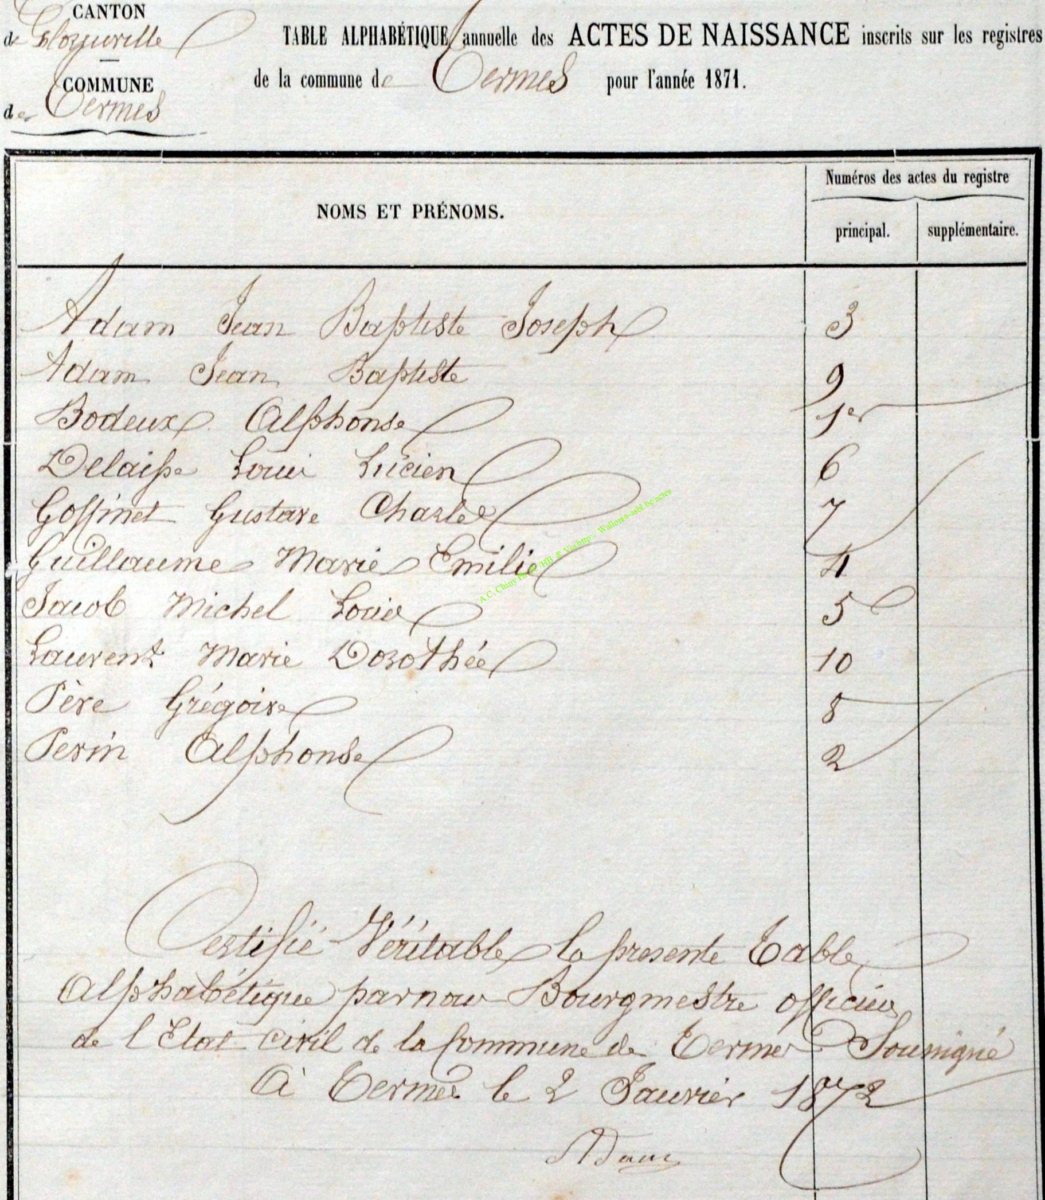 CANTON
de Florenville
TABLE ALPHABÉTIQUE annuelle des ACTES DE NAISSANCE inscrits sur les registres
de la commune de Termes pour l'année 1871.
COMMUNE
de Termes
NOMS ET PRÉNOMS.
Numéros des actes du registre
principal.
supplémentaire.
Adam Jean Baptiste Joseph 3
Adam Jean Baptiste 9
Bodeux Alphonse 1er
Delaisse Loui Lucien 6
Goffinet Gustave Charle 7
Guillaume Marie Emilie 4
Jacob Michel Louis 5
Laurent Marie Dorothée 10
Père Grégoire 8
Perin Alphonse 2
Certifié Véritable la presente Table
Alphabétique par nous Bourgmestre officier
de l Etat civil de la Commune de Termes Sousigné
A Termes le 2 Janvier 1872
Adam